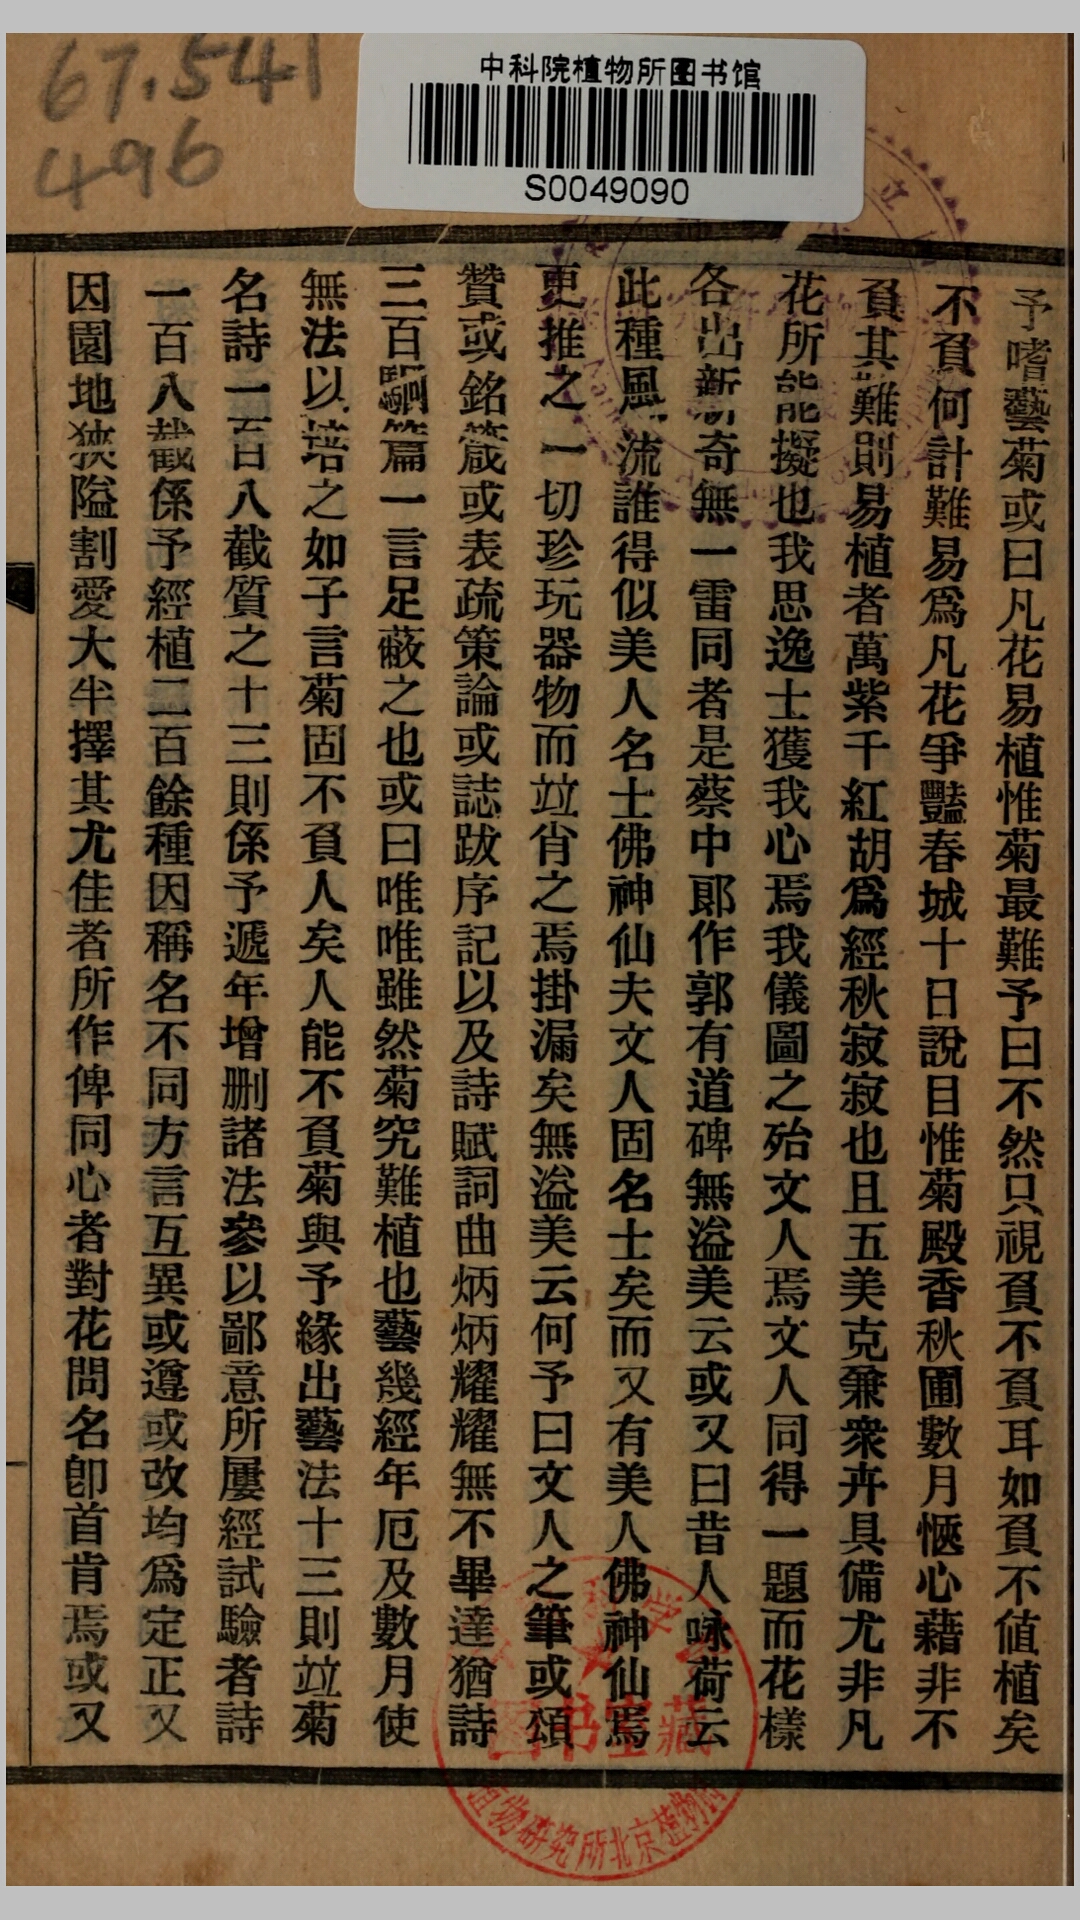 67.541
496
中科院植物所图书馆
S0049090
予嗜藝菊或曰凡花易植惟菊最難予曰不然只視負不負耳如負不值植矣
不負何計難易爲凡花爭豔春城十日說目惟菊殿香秋圃數月愜心藉非不
負其難則易植者萬紫千紅胡爲經秋寂寂也且五美克兼衆卉具備尤非凡
花所能擬也我思逸士獲我心焉我儀圖之殆文人焉文人同得一題而花樣
各出新奇無一雷同者是蔡中郎作郭有道碑無溢美云或又曰昔人咏荷云
此種風流誰得似美人名士佛神仙夫文人固名士矣而又有美人佛神仙焉
更推之一切珍玩器物而竝肖之焉掛漏矣無溢美云何予曰文人之筆或頌
贊或銘箴或表疏策論或誌跋序記以及詩賦詞曲炳炳耀耀無不畢達猶詩
三百篇一言足蔽之也或曰唯唯雖然菊究難植也藝幾經年厄及數月使
無法以培之如子言菊固不負人矣人能不負菊與予緣出藝法十三則竝菊
名詩一百八截質之十三則係予遞年增刪諸法參以鄙意所屢經試驗者詩
一百八截係予經植二百餘種因稱名不同方言互異或遵或改均爲定正又
因園地狹隘割愛大半擇其尤佳者所作俾同心者對花問名卽首肯焉或又
图书室藏
植物研究所北京植物园